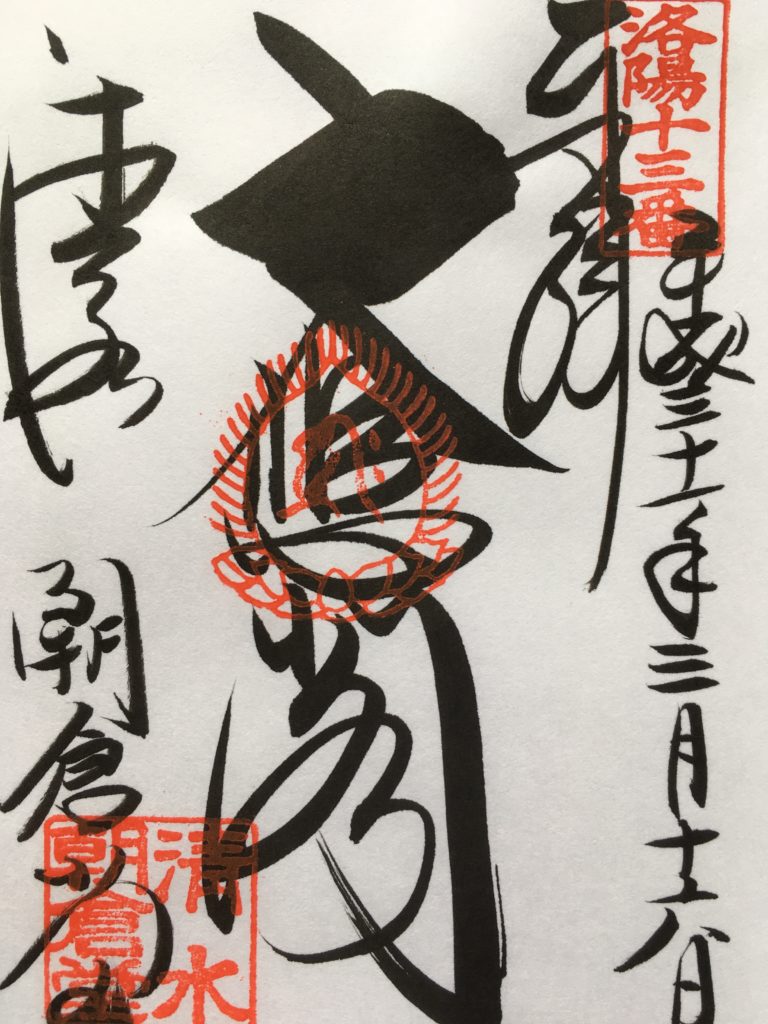 奉拝
洛陽十三番
平成三十一年三月十六日
大悲閣
朝倉堂
清水
朝倉堂